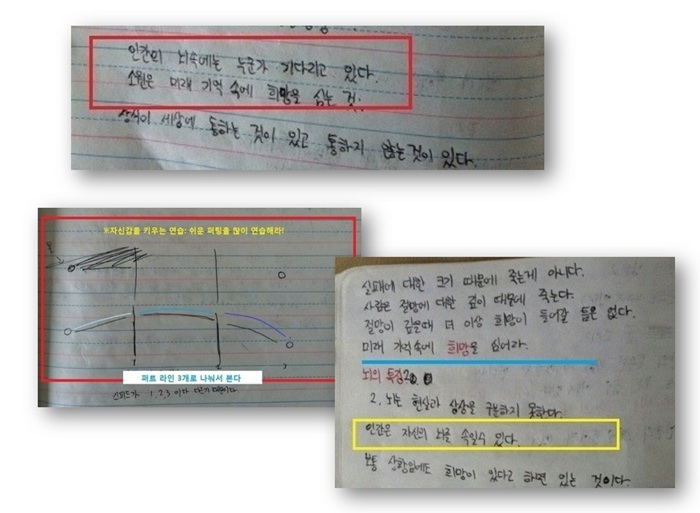 인간의 뇌속에는 누군가 기다리고 있다.
소원은 미래 기억 속에 희망을 심는 것.
상식이 세상에 통하는 것이 있고 통하지 않는것이 있다.
※자신감을 키우는 연습: 쉬운 퍼팅을 많이 연습해라!
퍼트 라인 3개로 나눠서 본다
스피드가 1, 2, 3 이 다 다르기 때문이다
실패에 대한 크기 때문에 죽는게 아니다.
사람은 절망에 대한 깊이 때문에 죽는다.
절망이 깊을때 더 이상 희망이 들어갈 틈은 없다.
미래 기억속에 희망을 심어라.
뇌의 특징2
2. 뇌는 현실과 상상을 구분하지 못한다.
인간은 자신의 뇌를 속일수 있다.
보통 상황임에도 희망이 있다고 하면 있는 것이다.